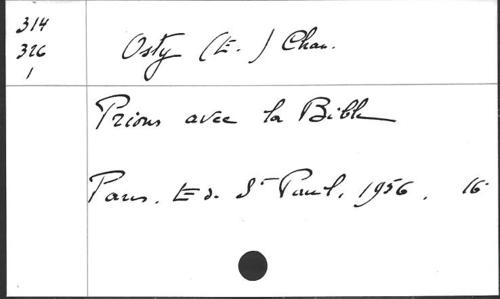 314
326
1
Osty (E.) Chan.
Prions avec la Bible
Paris. Ed. St Paul, 1956. 16°